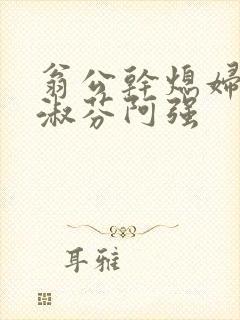 翁公幹熄婦
淑芬阿强
耳雅